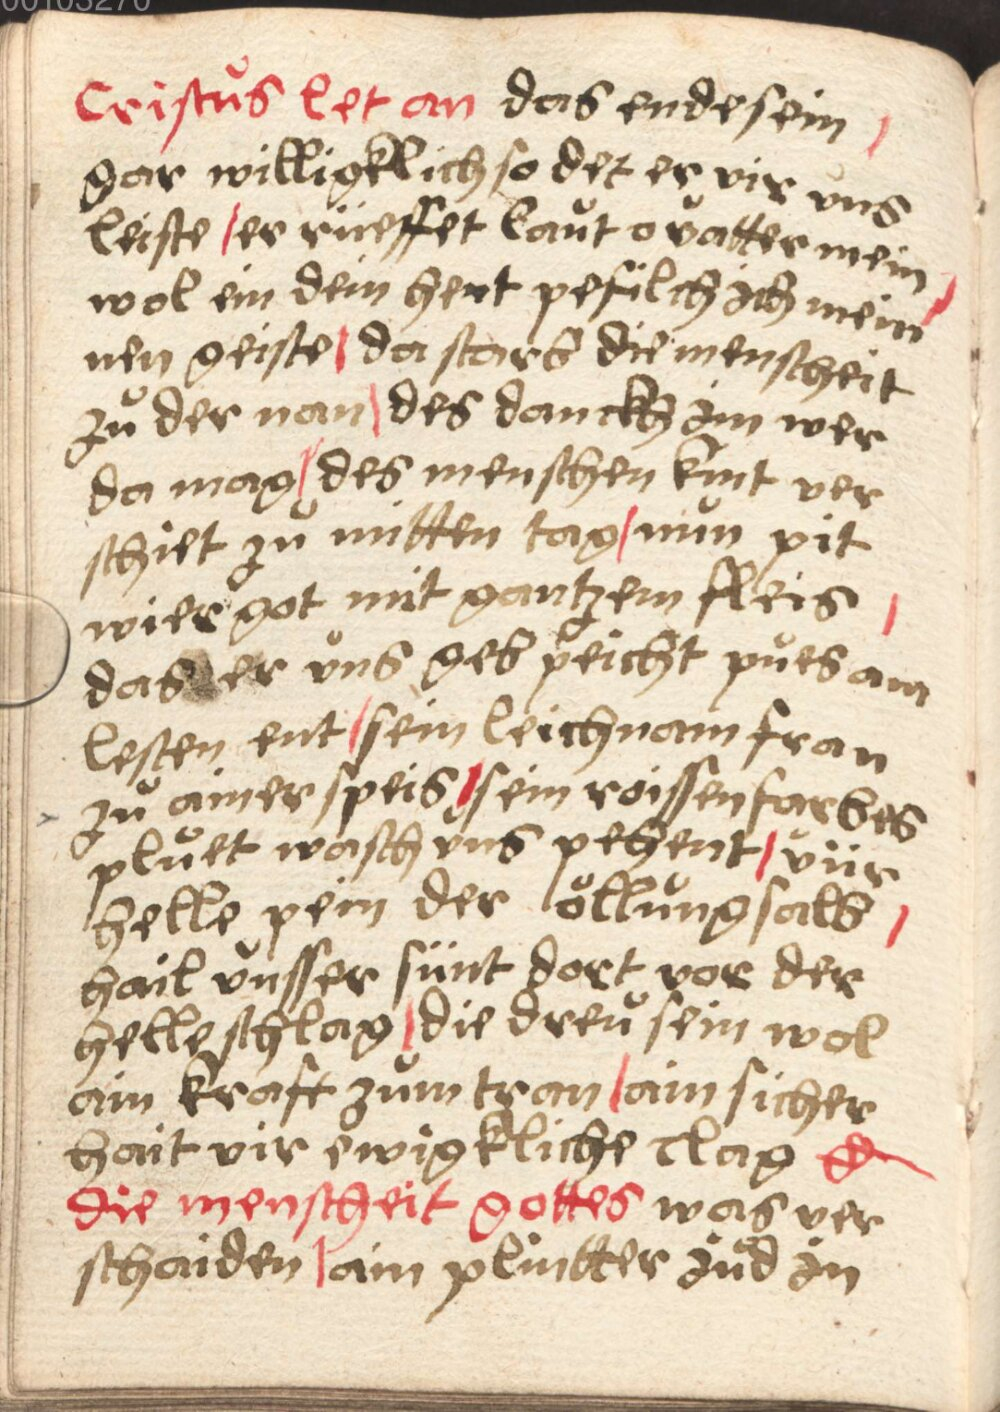 00103270
Cristus let an das ende sein /
gar willigklich so det er vir vns
leiste / er rüeffet laut o vatter mein
wol ein dein hent pefilch ich mein /
nen geiste / da starb die menscheit
zu der nan / des danckh im wer
da mag / des menschen kint ver
schiet zu mitten tag / nun pit
wier got mit gantzem fleis /
das er vns geb peicht pues am
lesten ent / sein leichnam fran
zu ainer speis / sein roissenfarbes
pluet wasch vns pehent / vür
helle pein der ollung salb /
hail vnsser sünt dort vor der
helle schlag / die dreu sein wol
ain kraft zum tran / ain sicher
hait vir ewigkliche clag
die menscheit gottes was ver
schaiden / ain plintter jud in